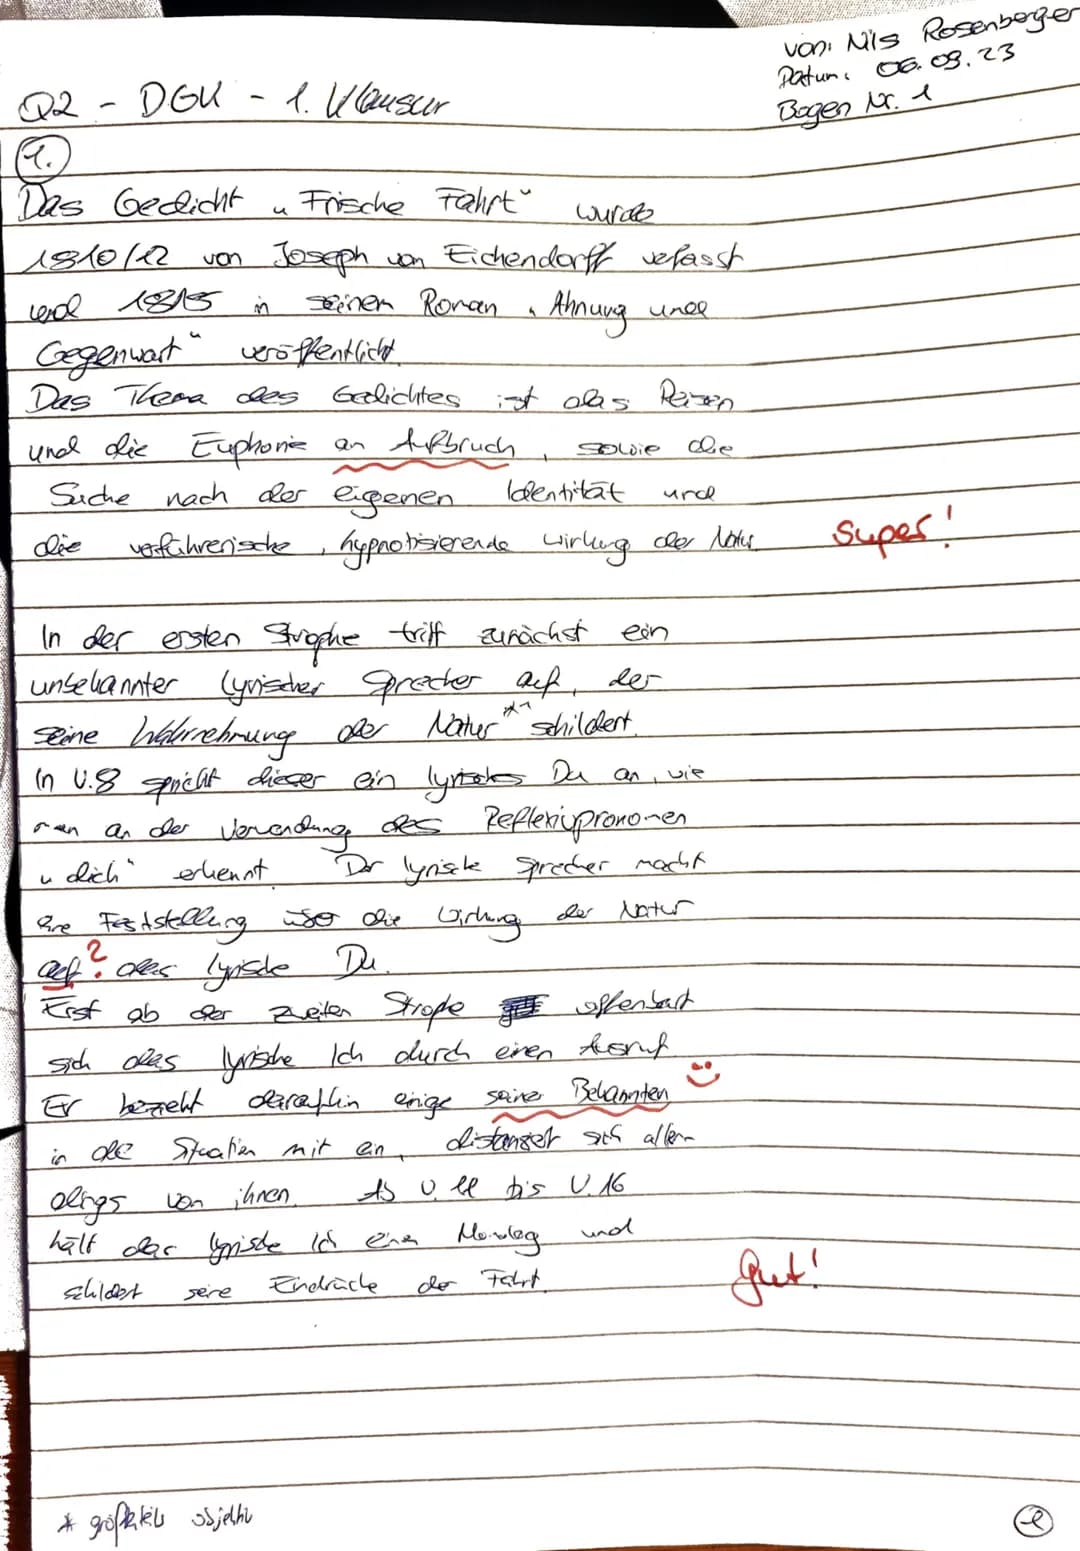 von: Nils Rosenberger
Datum: 06.09.23
Bogen Nr. 1
Q2 - DGK - 1. Klausur
1.
Das Gedicht „Frische Fahrt“ wurde
1810/12 von Joseph von Eichendorff vefasst
und 1815 in seinem Roman „Ahnung und
Gegenwart“ veröffentlicht.
Das Thema des Gedichtes ist das Reisen
und die Euphorie an Aufbruch, sowie die
Suche nach der eigenen Identität und
die verführerische, hypnotisierende Wirkung der Natur.
Super!
In der ersten Strophe triff zunächst ein
unbekannter lyrischer Sprecher auf, der
seine Wahrnehmung der Natur *1 schildert.
In V.8 spricht dieser ein lyrisches Du an, wie
man an der Verwendung des Reflexivpronomen
„dich“ erkennt. Der lyrische Sprecher macht
eine Feststellung über die Wirkung der Natur
auf ? das lyrische Du.
Erst ab der zweiten Strophe offenbart
sich das lyrische Ich durch einen Ausruf.
Er bezieht daraufhin einige seiner Bekannten
in die Situation mit ein, distanziert sich aller-
dings von ihnen. Ab V. 11 bis V. 16
hält das lyrische Ich einen Monolog und
schildert seine Eindrücke der Fahrt.
Gut!
* größtenteils objektiv